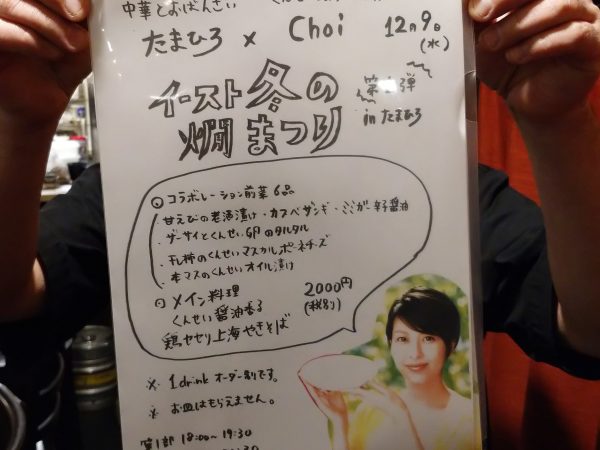 中華とおばんざい
たまひろ × Choi 12月9日(水)
イースト冬の
燗まつり
in たまひろ
コラボレーション前菜6品
・甘えびの老酒漬け・カスベザンギ・ここが辛子醤油
・ザーサイとくんせい卵のタルタル
・干し柿のくんせいマスカルポーネチーズ
・本マスのくんせいオイル漬け
メイン料理 2000円
くんせい醤油香る (税別)
鶏セセリ上海やきそば
※ 1drink オーダー制です。
※ お皿はもらえません。
第1部 18:00〜19:30